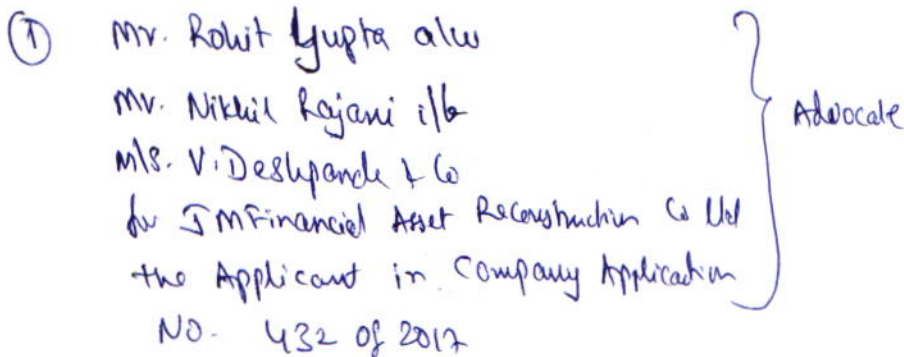 ① Mr. Rohit Gupta a/w
Mr. Nikhil Rajani i/b
M/s. V. Deshpande & Co
for JM Financial Asset Reconstruction Co Ltd
the Applicant in Company Application
No. 432 of 2017
Advocate